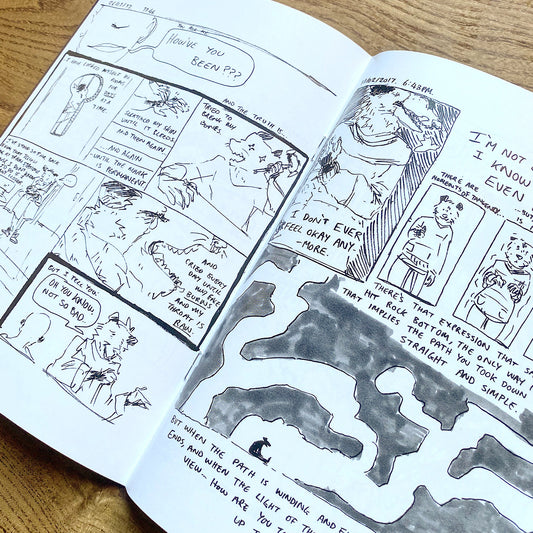 HOW'VE YOU
BEEN???
I HAVE LOCKED MYSELF IN
MY
FOR
DAYS
AT A
TIME.
AND THE TRUTH IS...
SCRATCHED MY SKIN
UNTIL IT BLEEDS
AND THEN AGAIN
AND AGAIN
UNTIL THE MARK
IS PERMANENT
TRIED TO
BREAK MY
BONES
AND
CRIED EVERY
DAY UNTIL
MY FACE
BURNS
AND MY
THROAT IS
RAW.
BUT I TELL YOU:
OH YOU KNOW,
NOT SO BAD
2017. 6:43PM
I DON'T EVER
FEEL OKAY ANY-
-MORE.
I'M NOT
I KNOW
EVEN
THERE ARE
MOMENTS OF
THERE'S THAT EXPRESSION THAT SA
HIT ROCK BOTTOM, THE ONLY WAY I
THAT IMPLIES THE PATH YOU TOOK DOWN
STRAIGHT AND SIMPLE.
BUT WHEN THE PATH IS WINDING AND
ENDS, AND WHEN THE LIGHT OF TH
VIEW- HOW ARE YOU T
UP T